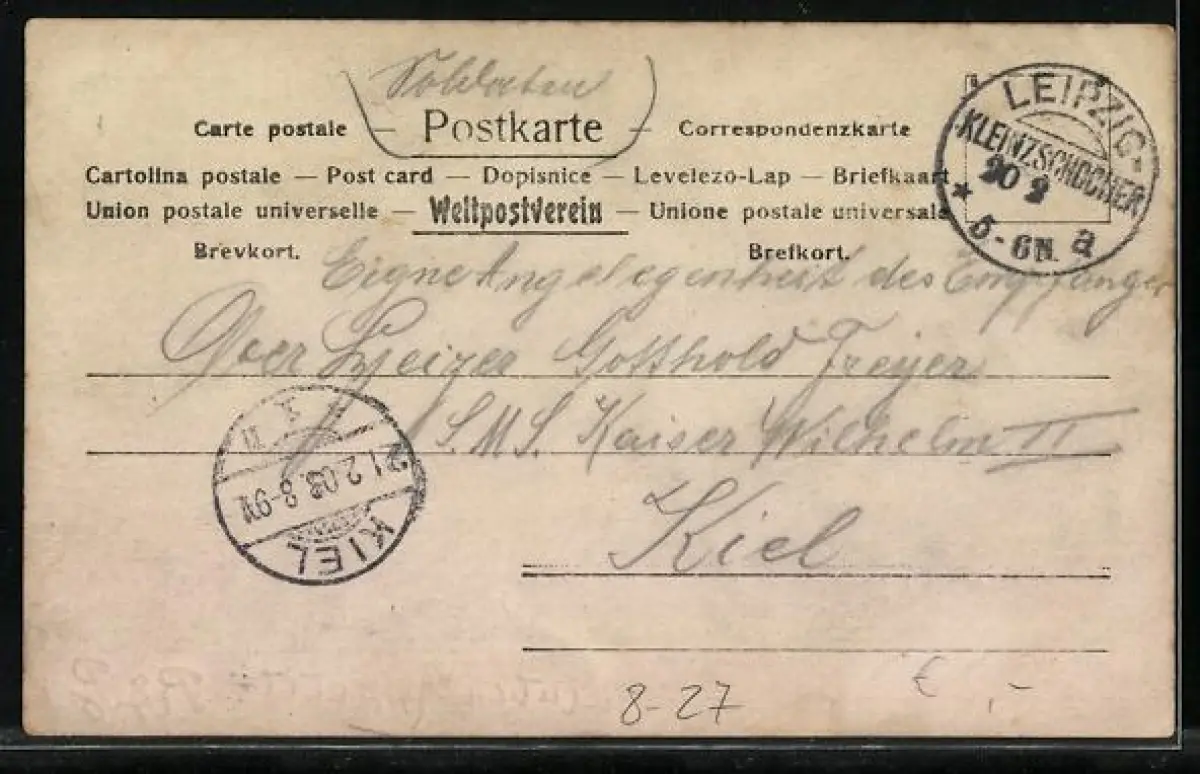 Soldaten
Carte postale — Postkarte — Correspondenzkarte
Cartolina postale — Post card — Dopisnice — Levelezo-Lap — Briefkaart
Union postale universelle — Weltpostverein — Unione postale universale
Brevkort. Brefkort.
LEIPZIG-
KLEINZSCHOCHER
20 2
* 5-6N. a
Eigne Angelegenheit des Empfänger
Ober Heizer Gotthold Freyer
S.M.S. Kaiser Wilhelm II
Kiel
21.2.03.8-9V
KIEL
8-27
€ ,-